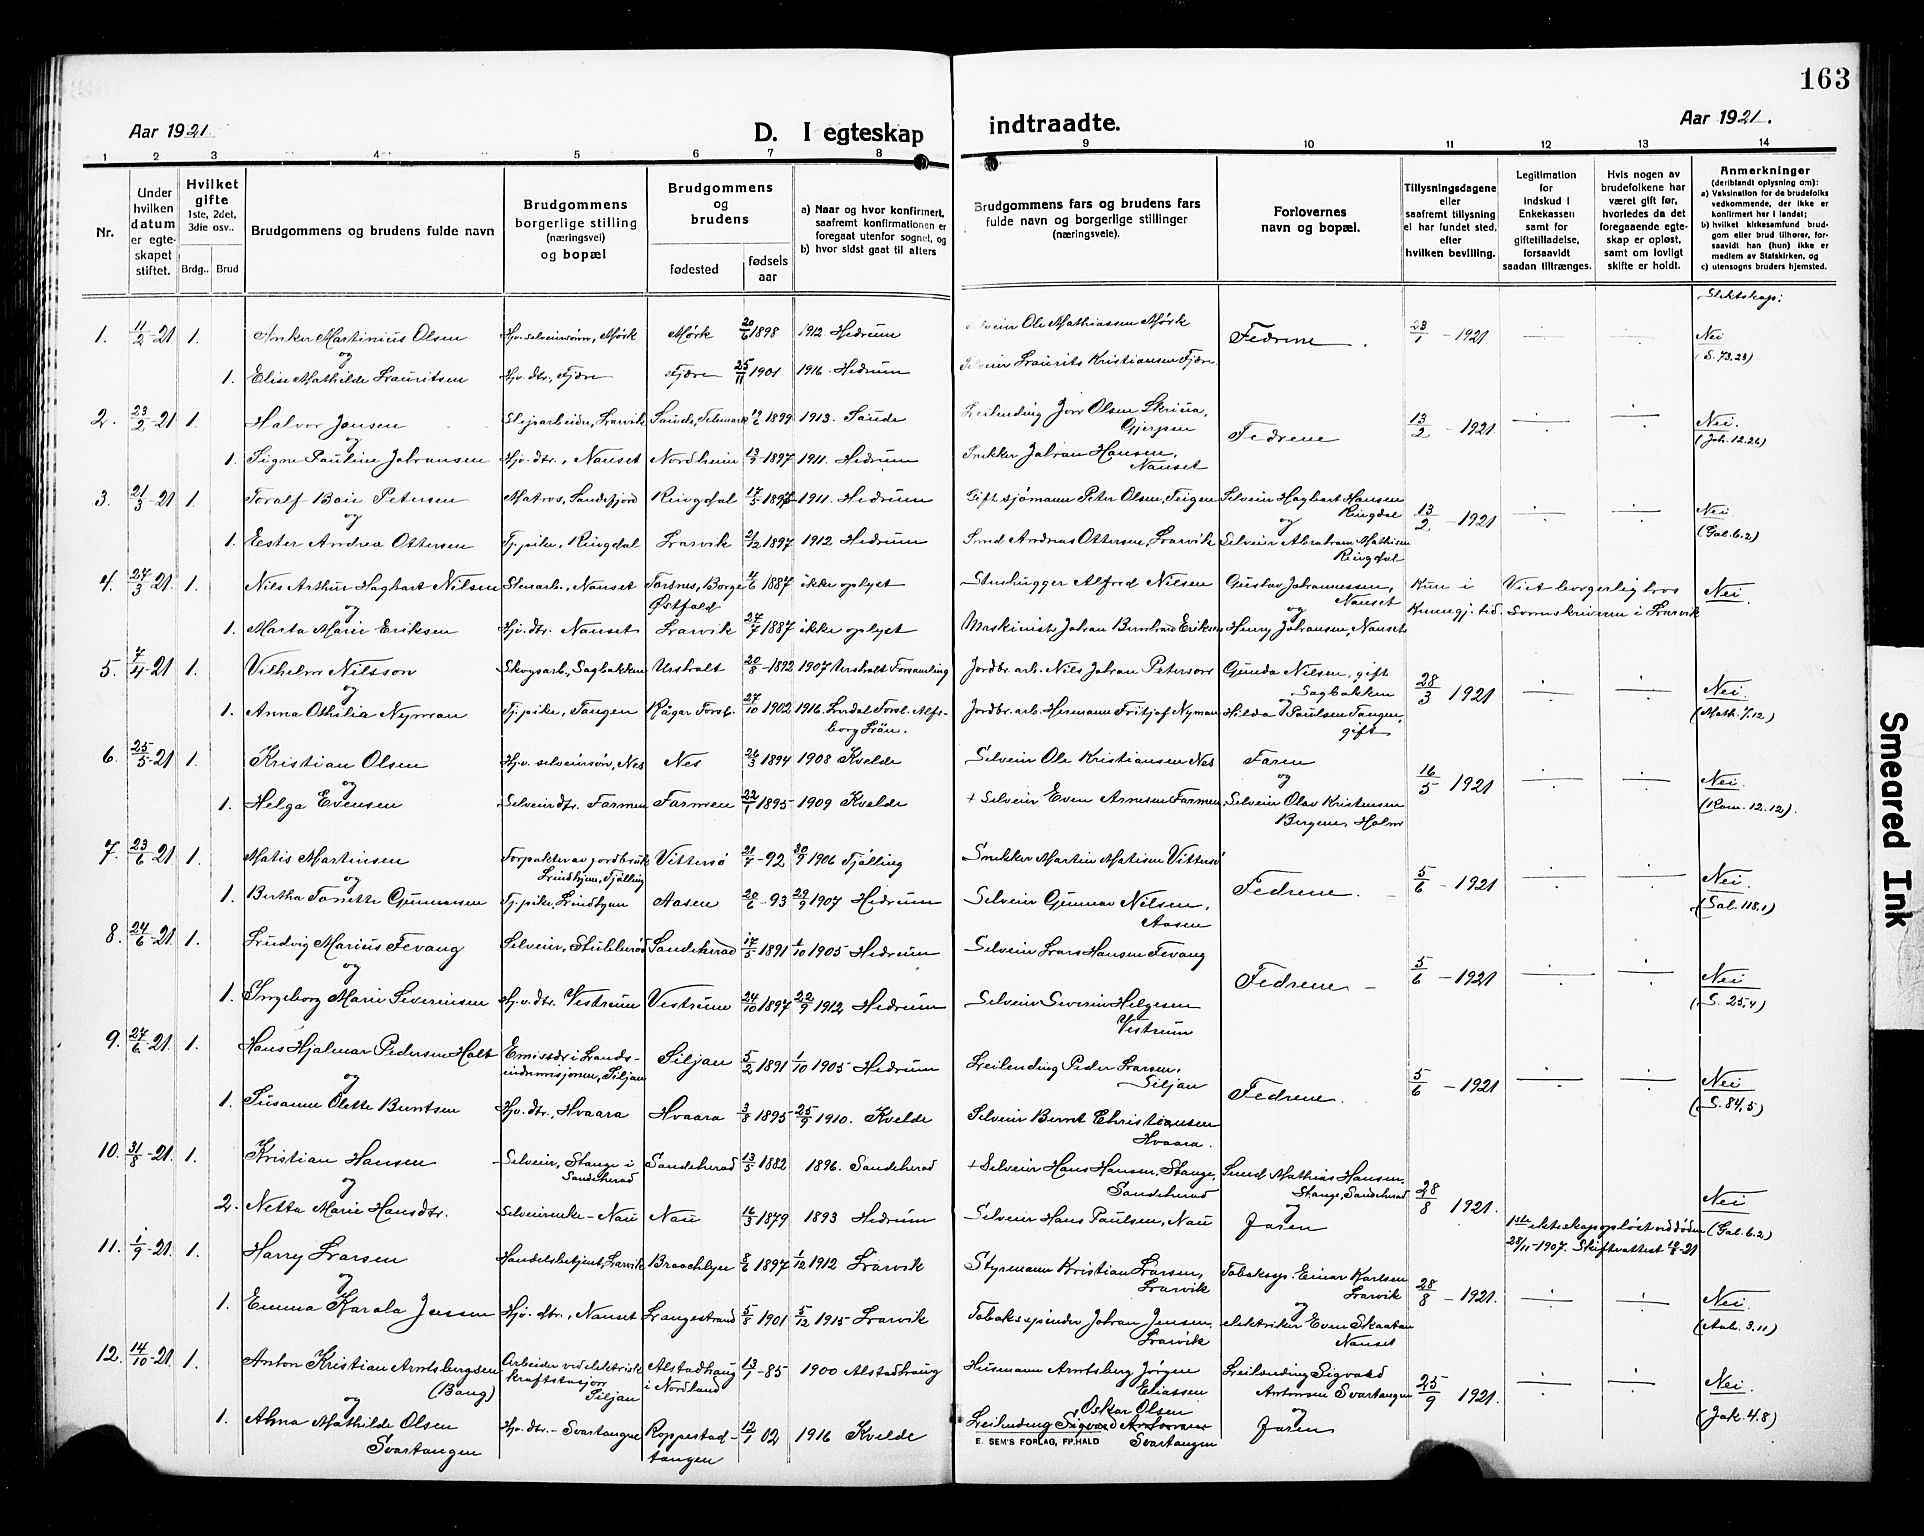 163
Aar 1921.
D. I egteskap indtraadte.
Aar 1921.
1 2 3 4 5 6 7 8 9 10 11 12 13 14
Nr.
Under hvilken datum er egteskapet stiftet.
Hvilket gifte 1ste, 2det, 3die osv..
Brdg.. Brud
Brudgommens og brudens fulde navn
Brudgommens borgerlige stilling (næringsvei) og bopæl
Brudgommens og brudens
fødested
fødselsaar
a) Naar og hvor konfirmert, saafremt konfirmationen er foregaat utenfor sognet, og
b) hvor sidst gaat til alters
Brudgommens fars og brudens fars fulde navn og borgerlige stillinger (næringsveie).
Forlovernes navn og bopæl.
Tillysningsdagene eller saafremt tillysning ei har fundet sted, efter hvilken bevilling.
Legitimation for indskud i Enkekassen samt for giftetilladelse, forsaavidt saadan tiltrænges.
Hvis nogen av brudefolkene har været gift før, hvorledes da det foregaaende egteskap er opløst, samt om lovligt skifte er holdt.
Anmerkninger
(deriblandt oplysning om):
a) Vaksination for de brudefolks vedkommende, der ikke er konfirmert her i landet;
b) hvilket kirkesamfund brudgom eller brud tilhører, forsaavidt han (hun) ikke er medlem av Statskirken, og
c) utensogns bruders hjemsted.
Slektskap:
1. 11/2-21 1. Anker Martinius Olsen Hjv. selveiersønn, Mørk Mørk 20/6 1898 1912 Hedrum Selveier Ole Mathiassen Mørk Fedrene. 23/1 - 1921 Nei
og (S. 73.23)
1. Elise Mathilde Lauritsen Hjv. dtr., Fjære Fjære 25/11 1901 1916 Hedrum Selveier Laurits Kristiansen Fjære
2. 23/2-21 1. Halvor Jensen Sliparbeider, Larvik Saude, Telemark 19/6 1899 1913. Saude Leilending Jørr Olsen Skriua, Gjerpen Fedrene 13/2 - 1921 Nei.
og (Joh. 12.26)
1. Signe Pauline Johansen Hjv. dtr., Nanset Nordheim 13/9-1897 1911. Hedrum Snekker Johan Hansen, Nanset
3. 21/3-21 1. Toralf Baie Petersen Matros, Sandefjord Ringdal 17/5 1893-1911. Hedrum Gift. sjømann Peter Olsen, Teigen Selveier Hagbart Hansen Ringdal 13/2 - 1921 Nei.
og og (Gal. 6.2)
1. Ester Andrea Ottersen Tj. pike, Ringdal Larvik 2/12 1897 1912 Hedrum Smed Andreas Ottersen, Larvik Selveier Abraham Mathisen Ringdal
4. 27/3-21. 1. Nils Arthur Hagbart Nilsen Stenarb., Nanset Torsnes, Borge Østfold 4/6 1887 ikke oplyst Stenhugger Alfred Nilsen Gustav Johannessen, Nanset Kun i Kunngj. tid. Viet borgerlig hos Sorenskriveren i Larvik Nei.
og og
1. Marta Marie Eriksen Hjv. dtr. Nanset Larvik 27/7 1887 ikke oplyst Maskinist Johan Bernhard Eriksen Henry Johansen, Nanset
5. 7/4-21 1. Vilhelm Nilsson Skogsarb., Sagbakken Urshult 20/8-1892 1907 Urshult Forsamling Jordbr. arb. Nils Johan Petersson Gunda Nilsen, gift Sagbakken 28/3 1921 Nei.
og og (Math. 7.12)
1. Anna Othilia Nyman Tj. pike, Tangen Rågar Forsl. 27/10 1902 1916. Lerdal Forsl. Alfsborg Län. Jordbr. arb. Hermann Fritjof Nyman Hilda Paulsen Tangen, gift
6. 25/5-21 1. Kristian Olsen Hjv. selveiersønn, Nes Nes 26/3 1894 1908 Kvelde Selveier Ole Kristiansen Nes Faren 16/5 1921 Nei
og og (Rom. 12.12).
1. Helga Evensen Selveierdtr. Farmen Farmen 22/1 1895-1909 Kvelde + Selveier Even Arnesen Farmen Selveier Olav Kristensen Bergene, Holm
7. 23/6-21 1. Matis Martinsen Forpakter av jordbruk Lindhjem, Tjølling Vittersø 21/7-92 30/9 1906 Tjølling Snekker Martin Matisen Vittersø Fedrene. 5/6 - 1921 Nei.
og (Sal. 118.1)
1. Bertha Tonette Gunnarsen Tj. pike, Lindhjem Aasen 20/6-93 29/9 1907 Hedrum Selveier Gunnar Nilsen, Aasen
8. 24/6-21 1. Ludvig Marius Fevang Selveier, Stubberød Sandeherad 17/5 1891 1/10 1905 Hedrum Selveier Lars Hansen Fevang Fedrene - 5/6 - 1921 Nei
og (S. 25,4)
1. Ingeborg Marie Severinsen Hjv. dtr. Vestrum Vestrum 24/10 1897 22/9 1912 Hedrum Selveier Severin Helgesen Vestrum
9. 27/6-21. 1. Hans Hjalmar Pedersen Holt Emissær i Landsindremisjonen, Siljan Siljan 5/2 1891 1/10 1905 Hedrum Leilending Peder Larsen, Siljan Fedrene. 5/6 - 1921 Nei
og (S. 84,5)
1. Susanne Olette Berntsen Hjv. dtr., Hvaara Hvaara 3/8 1895 25/9 1910. Kvelde Selveier Bernt Christiansen Hvaara.
10. 31/8-21. 1. Kristian Hansen Selveier, Stange i Sandeherad Sandeherad 13/5 1882 1896. Sandeherad + Selveier Hans Hansen, Stange, Sandeherad Smed Mathias Hansen, Stange, Sandeherad 28/8 1921. Nei
og og (Gal. 6.2)
2. Netta Marie Hansdtr. Selveierenke - Nau Nau 16/3 1879 1893 Hedrum Selveier Hans Paulsen, Nau Faren 1ste ekteskap opløst ved døden 28/11-1907. Skifteattest 19/8-21
11. 1/9-21. 1. Harry Larsen Handelsbetjent, Larvik Breachlyn 8/6 1897 1/12 1912 Larvik Styrmann Kristian Larsen, Larvik Tobakssp. Einar Karlsen Larvik 28/8 - 1921. Nei.
og og (Aab. 3.11)
1. Emma Karola Jensen Hjv. dtr., Nanset Langestrand 5/8 1901 5/12 1915 Larvik Tobaksspinder Johan Jensen, Larvik elektriker Even Skaatan Nanset
12. 14/10-21. 1. Anton Kristian Arntsbergsen (Bang) Arbeider ved elektrisk kraftstasjon Siljan Alstadhaug i Nordland 13/1-85 1900 Alstadhaug Husmann Arntsberg Jørgen Eliassen Leilending Sigvald Antonsen Svartangen 25/9 1921. Nei.
og og (Jak. 4.8)
1. Alma Mathilde Olsen Svartangen Hjv. dtr. - Svartangen Roppestadtangen 12/1 02 1916 Kvelde Oskar Olsen Leilending Sigvard Antonsen Svartangen Faren
E. SEM'S FORLAG, FR.HALD
Smeared Ink